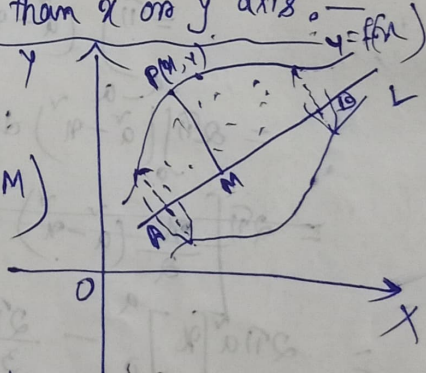 than x or y axis.
y = f(x)
Y
P(x, y)
L
M)
M
A
O
X